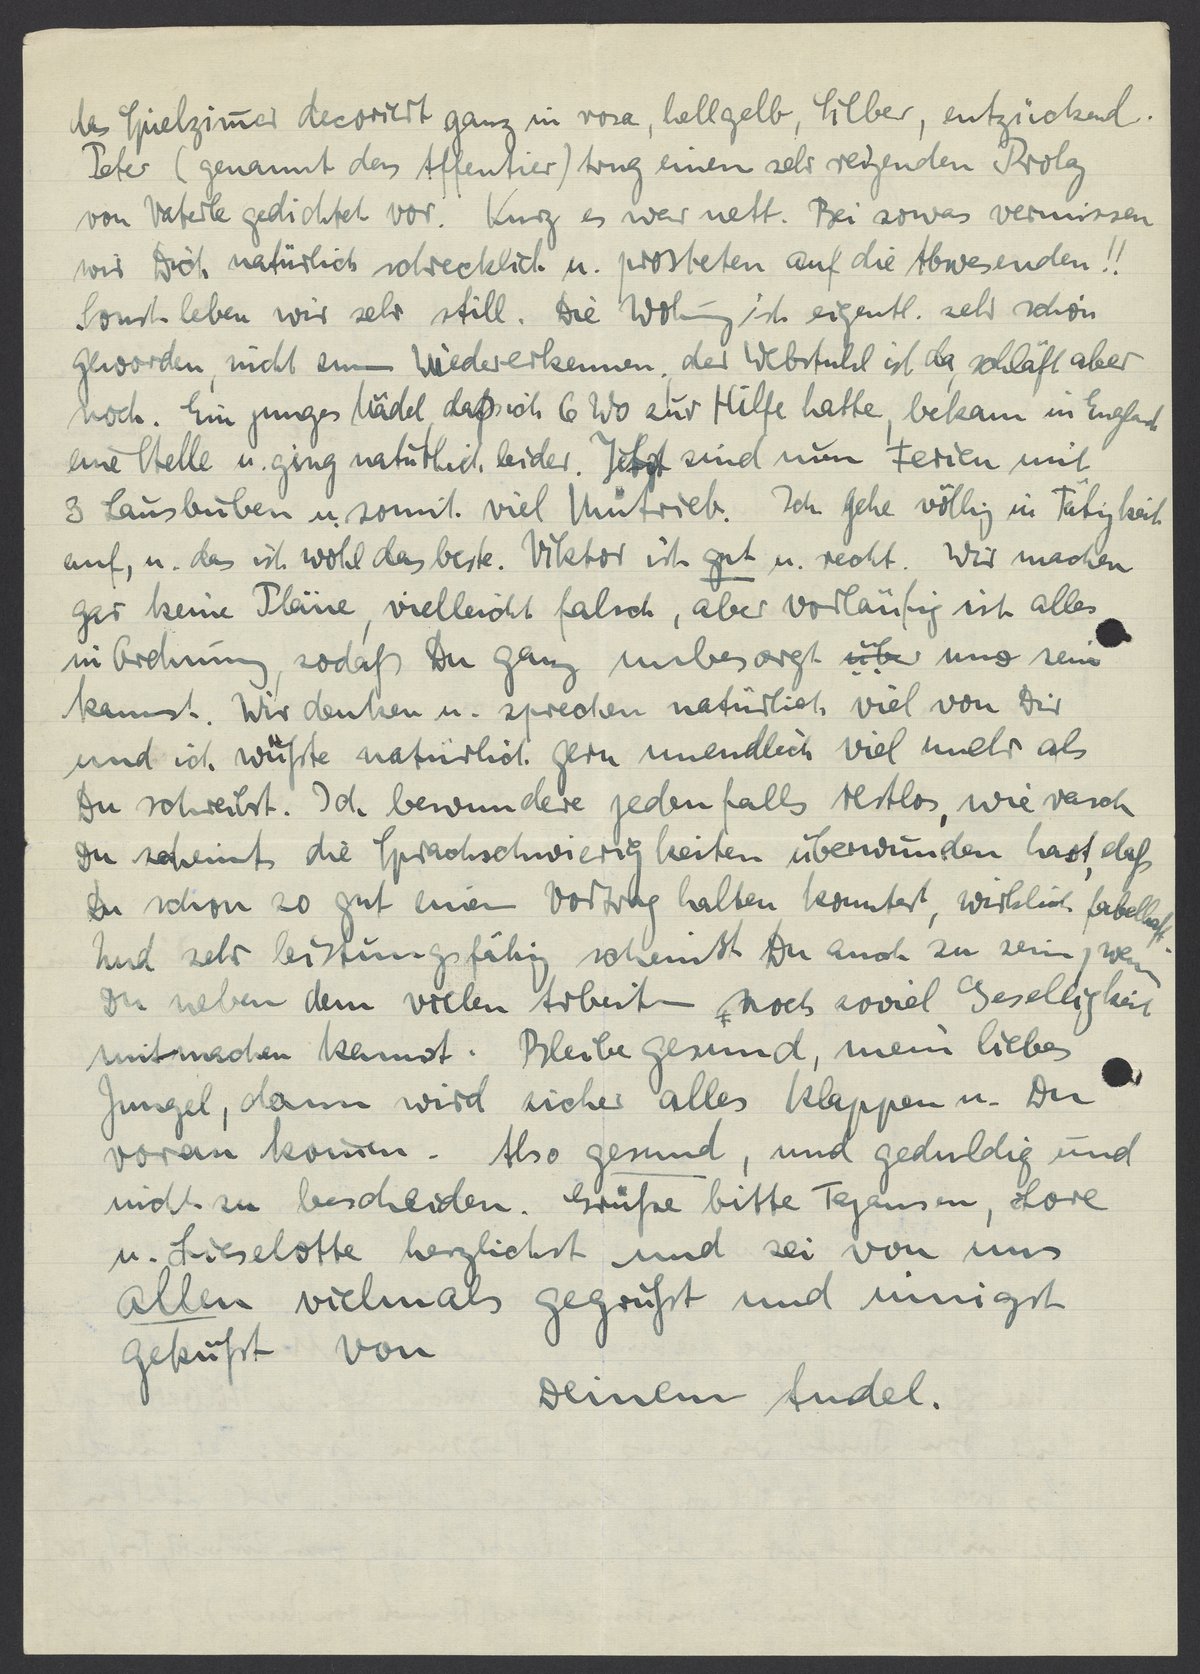 das Spielzimmer decoriert ganz in rosa, hellgelb, Silber, entzückend.
Peter (genannt das Affentier) trug einen sehr reizenden Prolog
von Vaterle gedichtet vor. Kurz es war nett. Bei sowas vermissen
wir Dich natürlich schrecklich u. prosteten auf die Abwesenden!!
Sonst leben wir sehr still. Die Wohnung ist eigentl. sehr schön
geworden, nicht zum Wiedererkennen, der Webstuhl ist da, schläft aber
noch. Ein junges Mädel, das ich 6 Wo zur Hilfe hatte, bekam in England
eine Stelle u. ging natürlich leider. Jetzt sind nun Ferien mit
3 Lausbuben u. somit viel Umtrieb. Ich gehe völlig in Tätigkeit
auf, u. das ist wohl das beste. Viktor ist gut u. recht. Wir machen
gar keine Pläne, vielleicht falsch, aber vorläufig ist alles
in Ordnung, sodaß Du ganz unbesorgt über uns sein
kannst. Wir denken u. sprechen natürlich viel von Dir
und ich wüßte natürlich gern unendlich viel mehr als
Du schreibst. Ich bewundere jedenfalls restlos, wie rasch
Du scheints die Sprachschwierigkeiten überwunden hast, daß
Du schon so gut einen Vortrag halten konntest, wirklich fabelhaft.
Und sehr leistungsfähig scheinst Du auch zu sein, wenn
Du neben dem vielen Arbeiten noch soviel Geselligkeit
mitmachen kannst. Bleibe gesund, mein liebes
Jungel, dann wird sicher alles klappen u. Du
voran kommen. Also gesund, und geduldig und
nicht zu bescheiden. Grüße bitte Lore
u. Lieselotte herzlichst und sei von uns
allen vielmals gegrüßt und innigst
geküßt von
Deinem Audel.